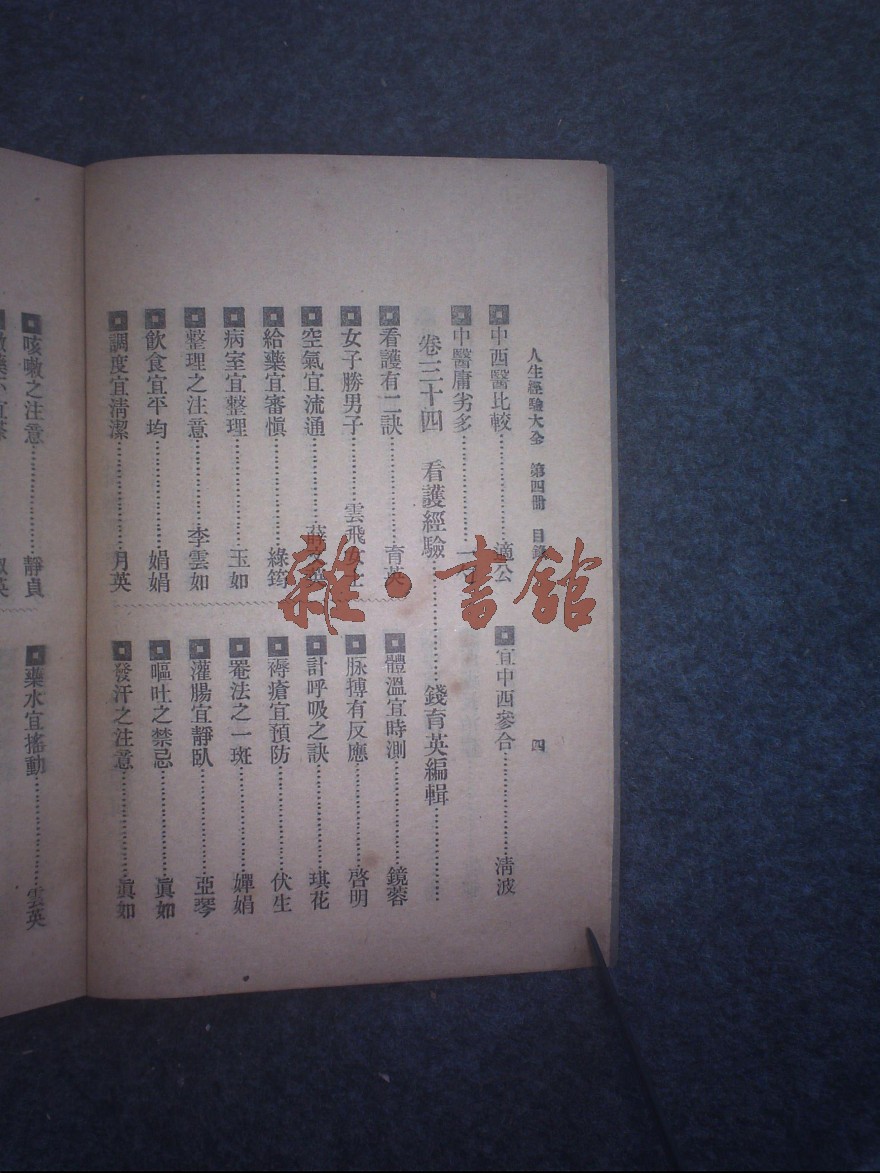 人生經驗大全　第四冊　目錄　四
中西醫比較……適公
中醫庸劣多……一
卷三十四　看護經驗……錢育英編輯……
看護有二訣……育英
女子勝男子……雲飛女士
空氣宜流通……薛
給藥宜審慎……綠筠
病室宜整理……玉如
整理之注意……李雲如
飲食宜平均……娟娟
調度宜清潔……月英
宜中西參合……清波
體溫宜時測……鏡蓉
脉搏有反應……啓明
計呼吸之訣……琪花
褥瘡宜預防……伏生
罨法之一斑……嬋娟
灌腸宜靜臥……亞琴
嘔吐之禁忌……眞如
發汗之注意……眞如
咳嗽之注意……靜貞
藥水宜搖動……雲英
雜·書館